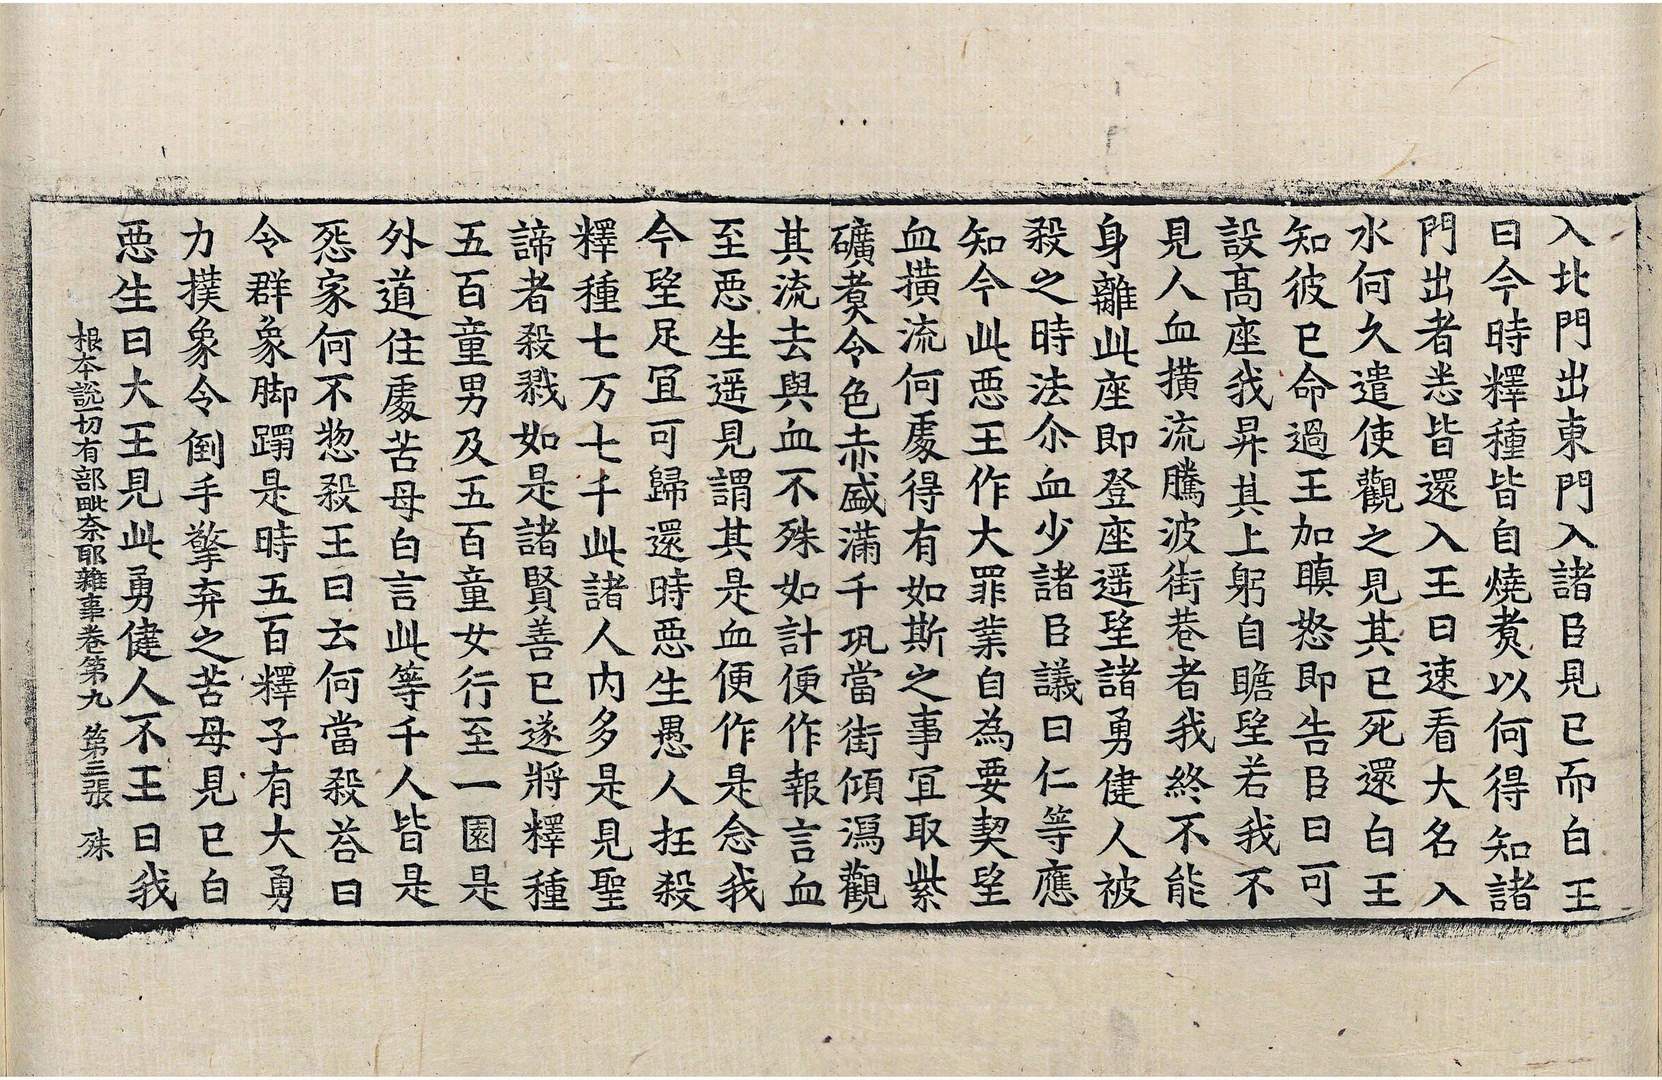 入北門出東門入諸臣見已而白王
曰今時釋種皆自燒煑以何得知諸
門出者悉皆還入王曰速看大名入
水何久遣使觀之見其已死還白王
知彼已命過王加瞋怒即告臣曰可
設高座我昇其上躬自瞻望若我不
見人血橫流騰波街巷者我終不能
身離此座即登座遥望諸勇健人被
殺之時法尒血少諸臣議曰仁等應
知今此惡王作大罪業自為要契望
血橫流何處得有如斯之事冝取紫
礦煑令色赤盛滿千巩當街傾瀉觀
其流去與血不殊如計便作報言血
至惡生遥見謂其是血便作是念我
今望足冝可歸還時惡生愚人抂殺
釋種七万七千此諸人内多是見聖
諦者殺戮如是諸賢善已遂將釋種
五百童男及五百童女行至一園是
外道住處苦母白言此等千人皆是
怨家何不惣殺王曰云何當殺荅曰
令群象脚蹋是時五百釋子有大勇
力撲象令倒手擎弃之苦母見已白
惡生曰大王見此勇健人不王曰我
根本說一切有部毗奈耶雜事卷第九 第三張 殊